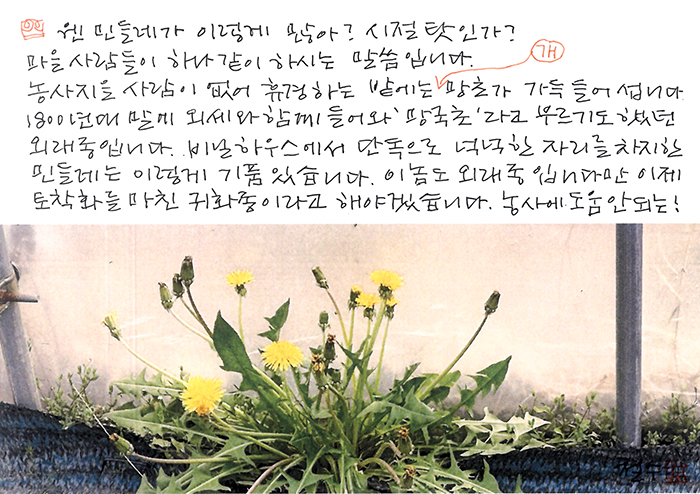 웬 민들레가 이렇게 많아? 시절 탓인가?
마을 사람들이 하나 같이 하시는 말씀입니다.
개
농사지을 사람이 없어 휴경하는 밭에는 망초가 가득 들어섭니다
1800년대 말에 외세와 함께 들어와 '망국초'라고 부르기도 했던
외래종입니다. 비닐하우스에서 단독으로 넉넉한 자리를 차지한
민들레는 이렇게 기품 있습니다. 이놈도 외래종입니다만 이제
토착화를 마친 귀화종이라고 해야겠습니다. 농사에 도움 안되는!